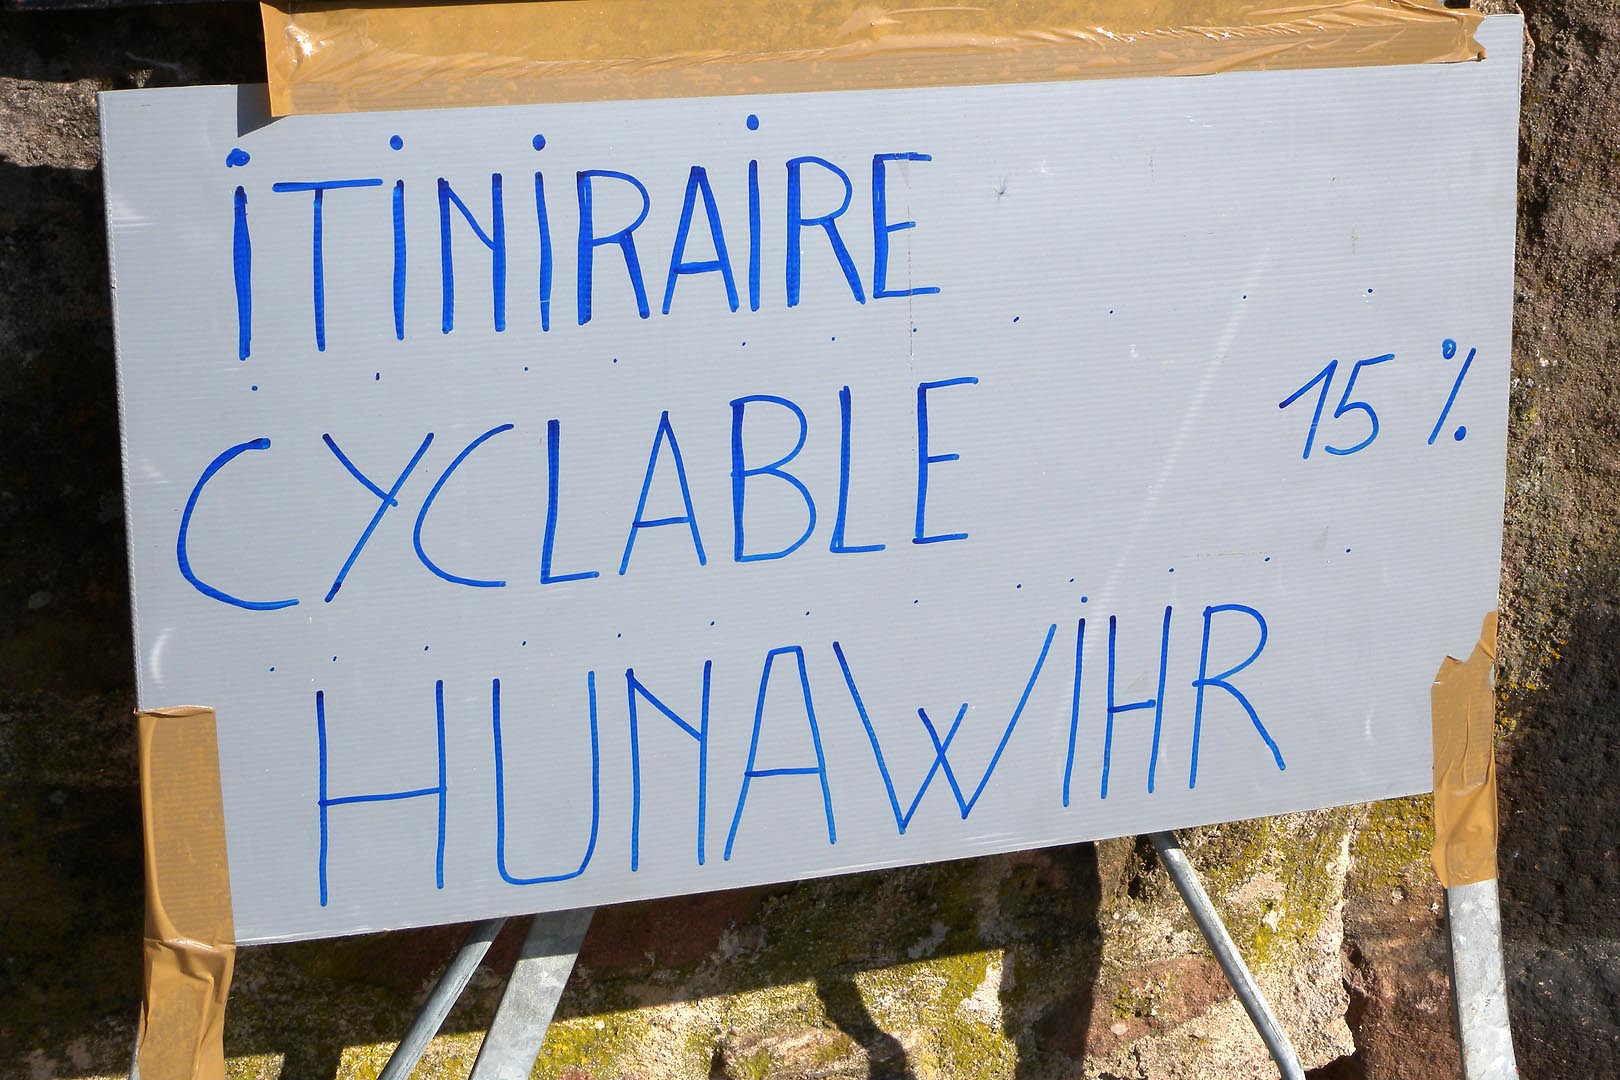 iTiNiRAiRE
CYCLABLE 15 %
HUNAWiHR